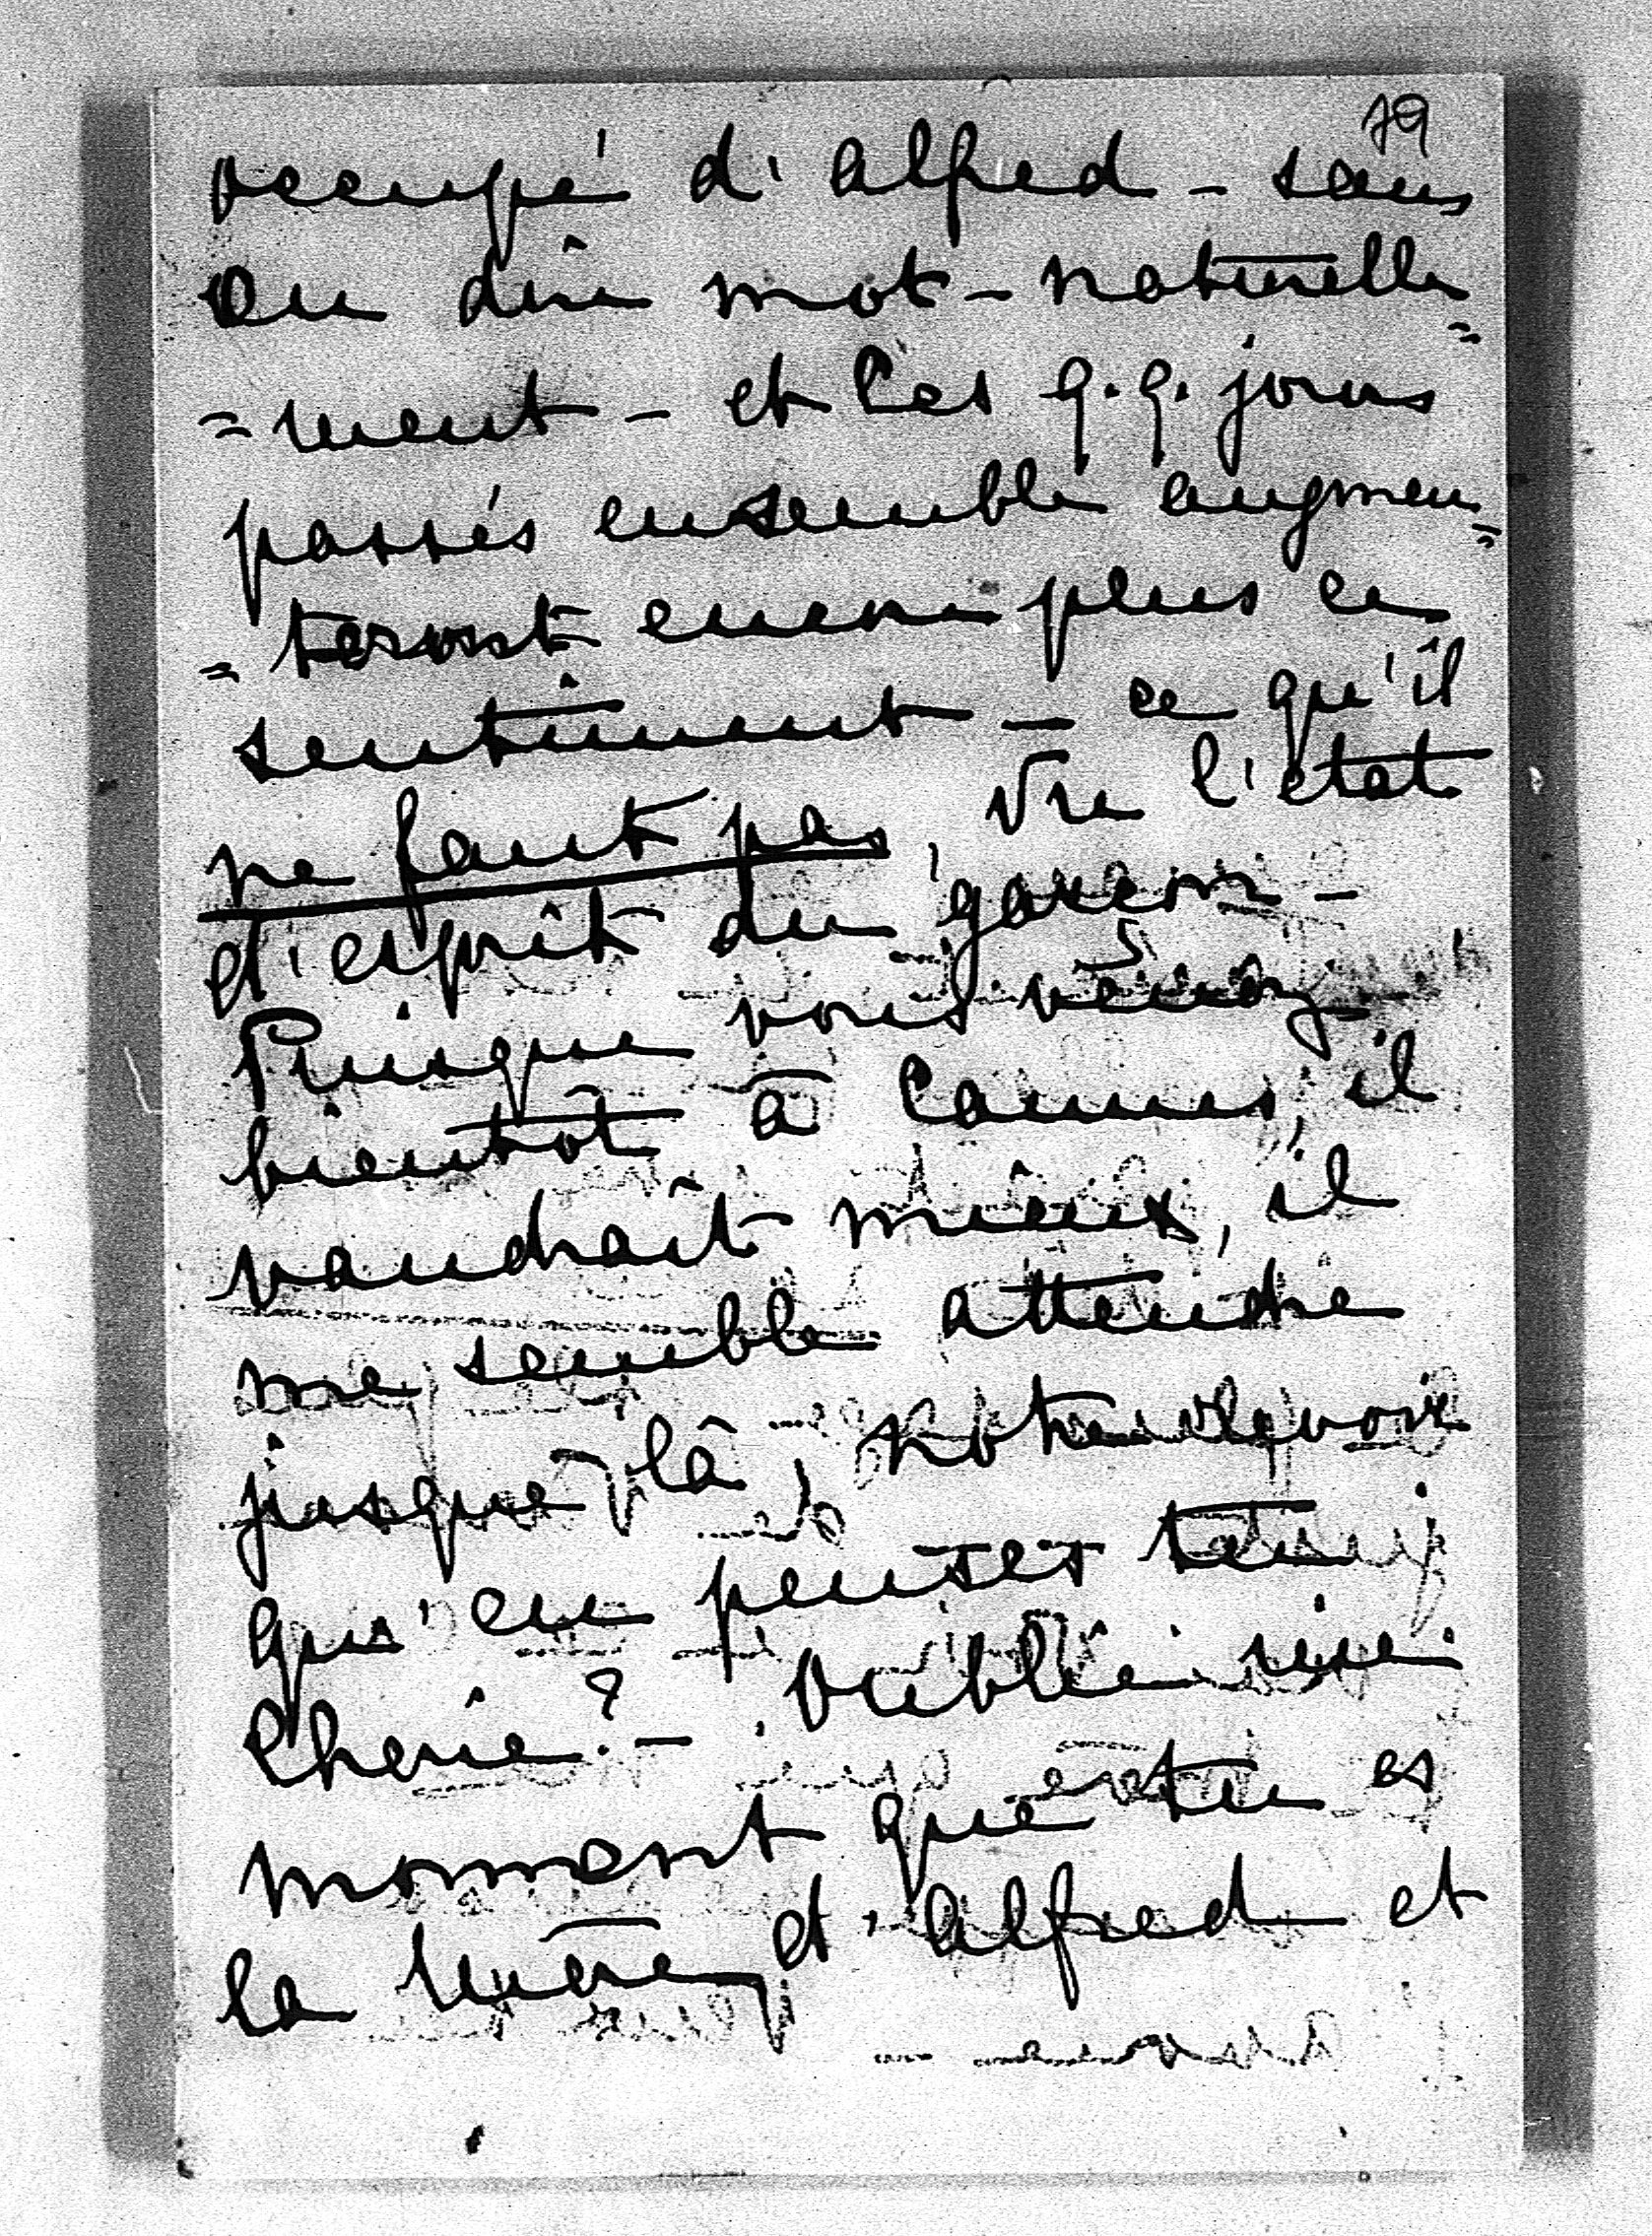 79
occupé d'Alfred – sans
en dire mot – naturelle
= ment – et ces q.q. jours
passés ensemble augmen=
= teront encore plus ce
sentiment – ce qu'il
ne faut pas, vu l'état
d'esprit du garçon –
Puisque vous venez
bientôt à Cannes, il
vaudrait mieux, il
me semble attendre
jusque là,
qu'en penses tu
Cherie? – . Oublie
moment que tu es
la mère d'Alfred et